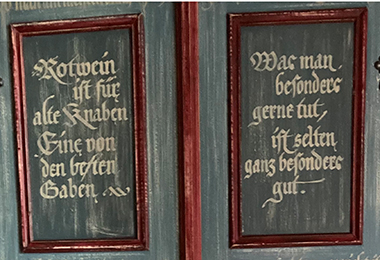 Rotwein
ist für
alte Knaben
Eine von
den besten
Gaben
Was man
besonders
gerne tut,
ist selten
ganz besonders
gut.